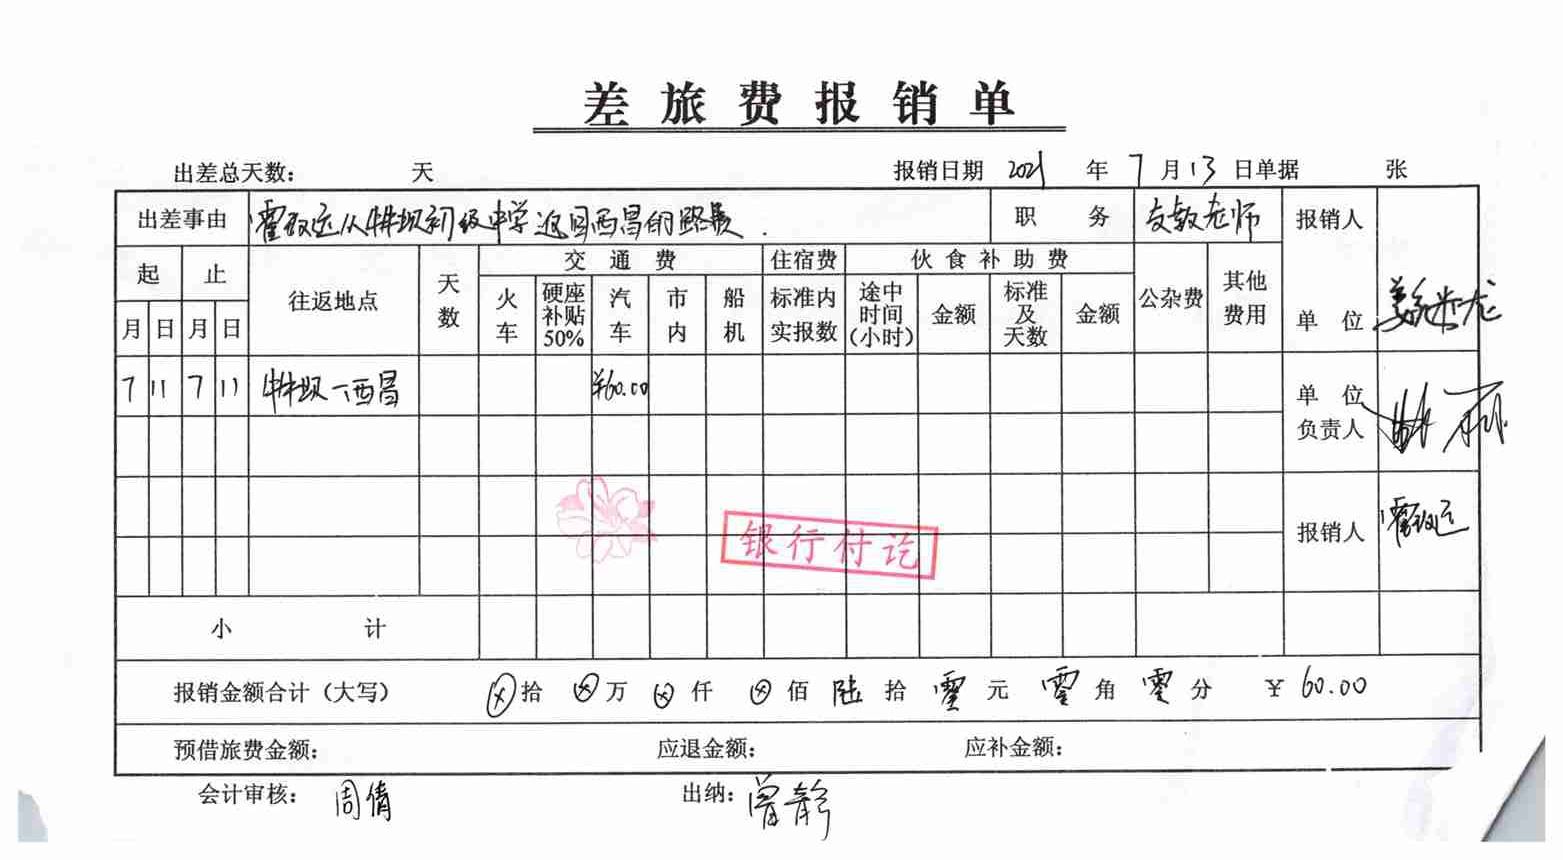 差旅费报销单
出差总天数: 天 报销日期 2021 年 7 月 13 日单据 张
出差事由 从牛牛坝初级中学返回西昌的路费. 职务 支教老师 报销人
起 止 往返地点 天数 交通费 住宿费 伙食补助费 公杂费 其他费用 单位
月 日 月 日 火车 硬座补贴50% 汽车 市内 船机 标准内实报数 途中时间(小时) 金额 标准及天数 金额
7 11 7 11 牛牛坝-西昌 ¥60.00 单位负责人
银行付讫
报销人
小计
报销金额合计（大写） ⊗拾 ⊗万 ⊗仟 ⊗佰 陆拾 零元 零角 零分 ¥ 60.00
预借旅费金额: 应退金额: 应补金额:
会计审核: 周倩 出纳: 曾静